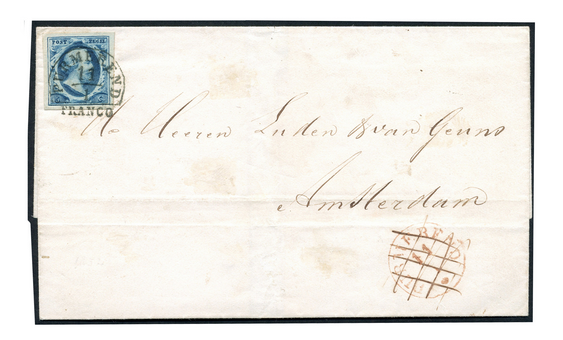 POST ZEGEL
PURMEREND
FRANCO
Heeren Luden & van Geuns
Amsterdam
PURMEREND